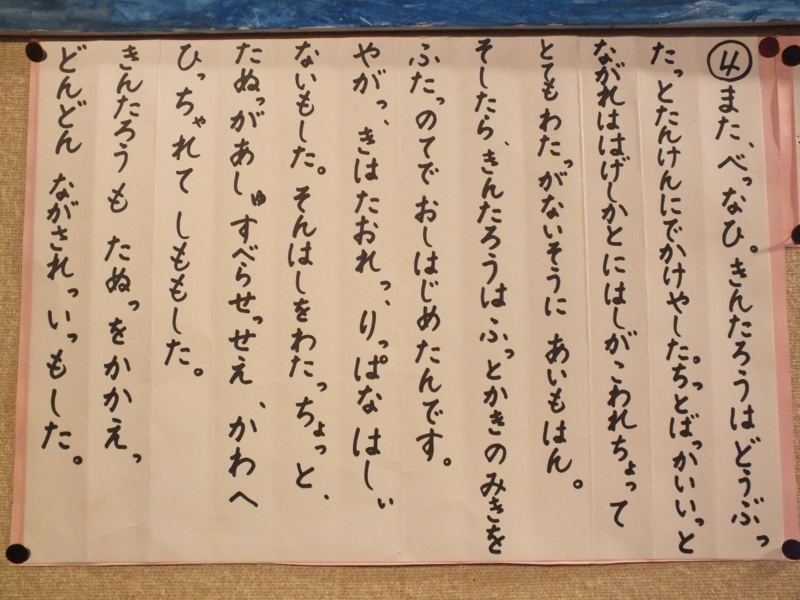 ④また、べっなひ。きんたろうはどうぶっ
たっとたんけんにでかけやした。ちっとばっかいいっと
ながれははげしかとにはしがこわれちょって
とてもわたっがないそうに あいもはん。
そしたら、きんたろうは ふっとかきのみきを
ふたっのてで おしはじめたんです。
やがっ、きはたおれっ、りっぱな はしぃ
ないもした。そんはしをわたっちょっと、
たぬっがあしゅすべらせっせえ、かわへ
ひっちゃれて しももした。
きんたろうも たぬっを かかえっ
どんどん ながされっ いっもした。